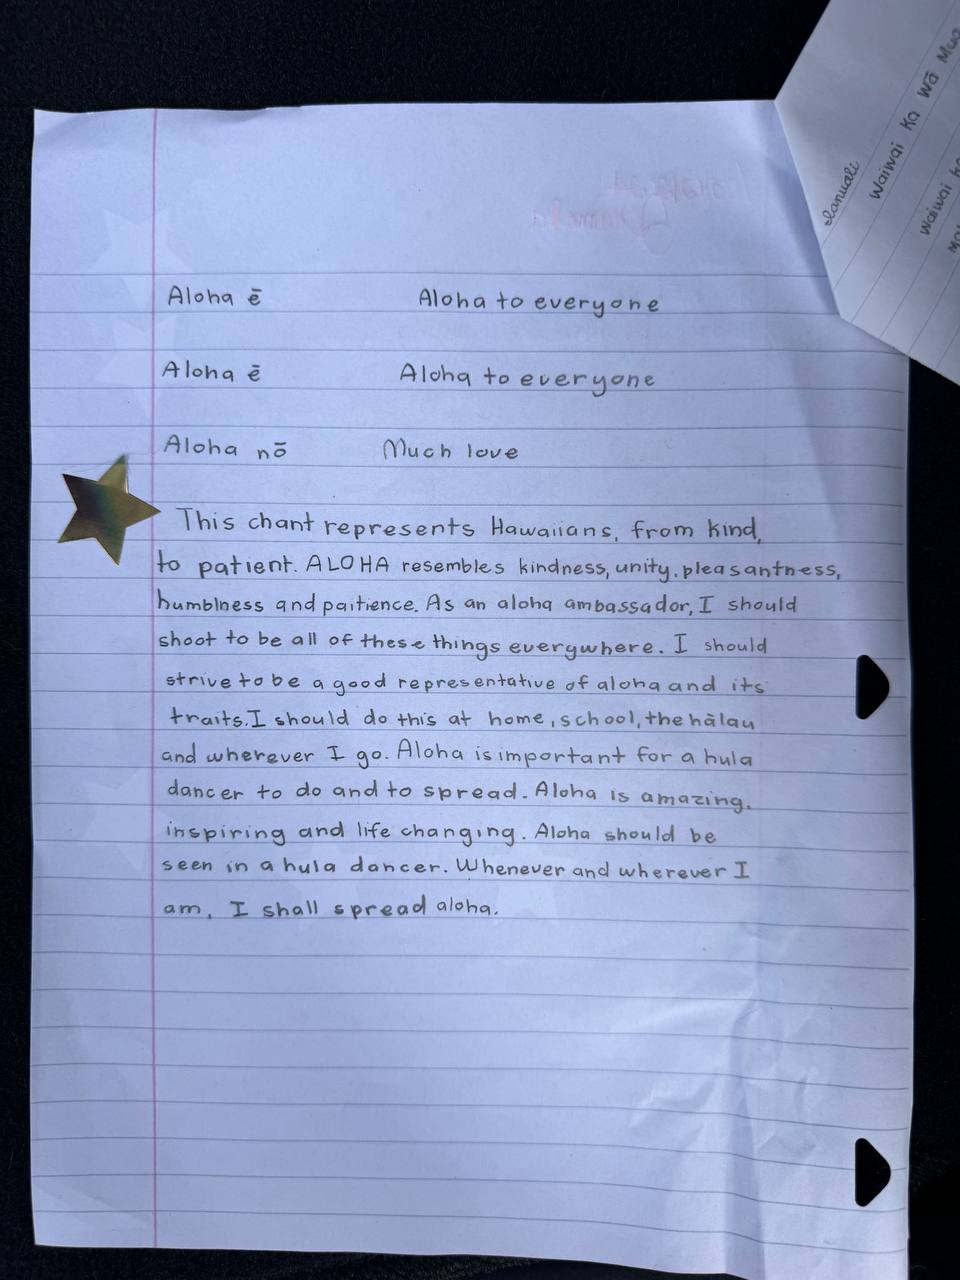 Aloha ē Aloha to everyone
Aloha ē Aloha to everyone
Aloha nō Much love
This chant represents Hawaiians, from kind,
to patient. ALOHA resembles kindness, unity, pleasantness,
humblness and paitience. As an aloha ambassador, I should
shoot to be all of these things everywhere. I should
strive to be a good representative of aloha and its
traits. I should do this at home, school, the hālau
and wherever I go. Aloha is important for a hula
dancer to do and to spread. Aloha is amazing,
inspiring and life changing. Aloha should be
seen in a hula dancer. Whenever and wherever I
am, I shall spread aloha.
Ianuali
Waiwai Ka Wā Mua
Waiwai ka